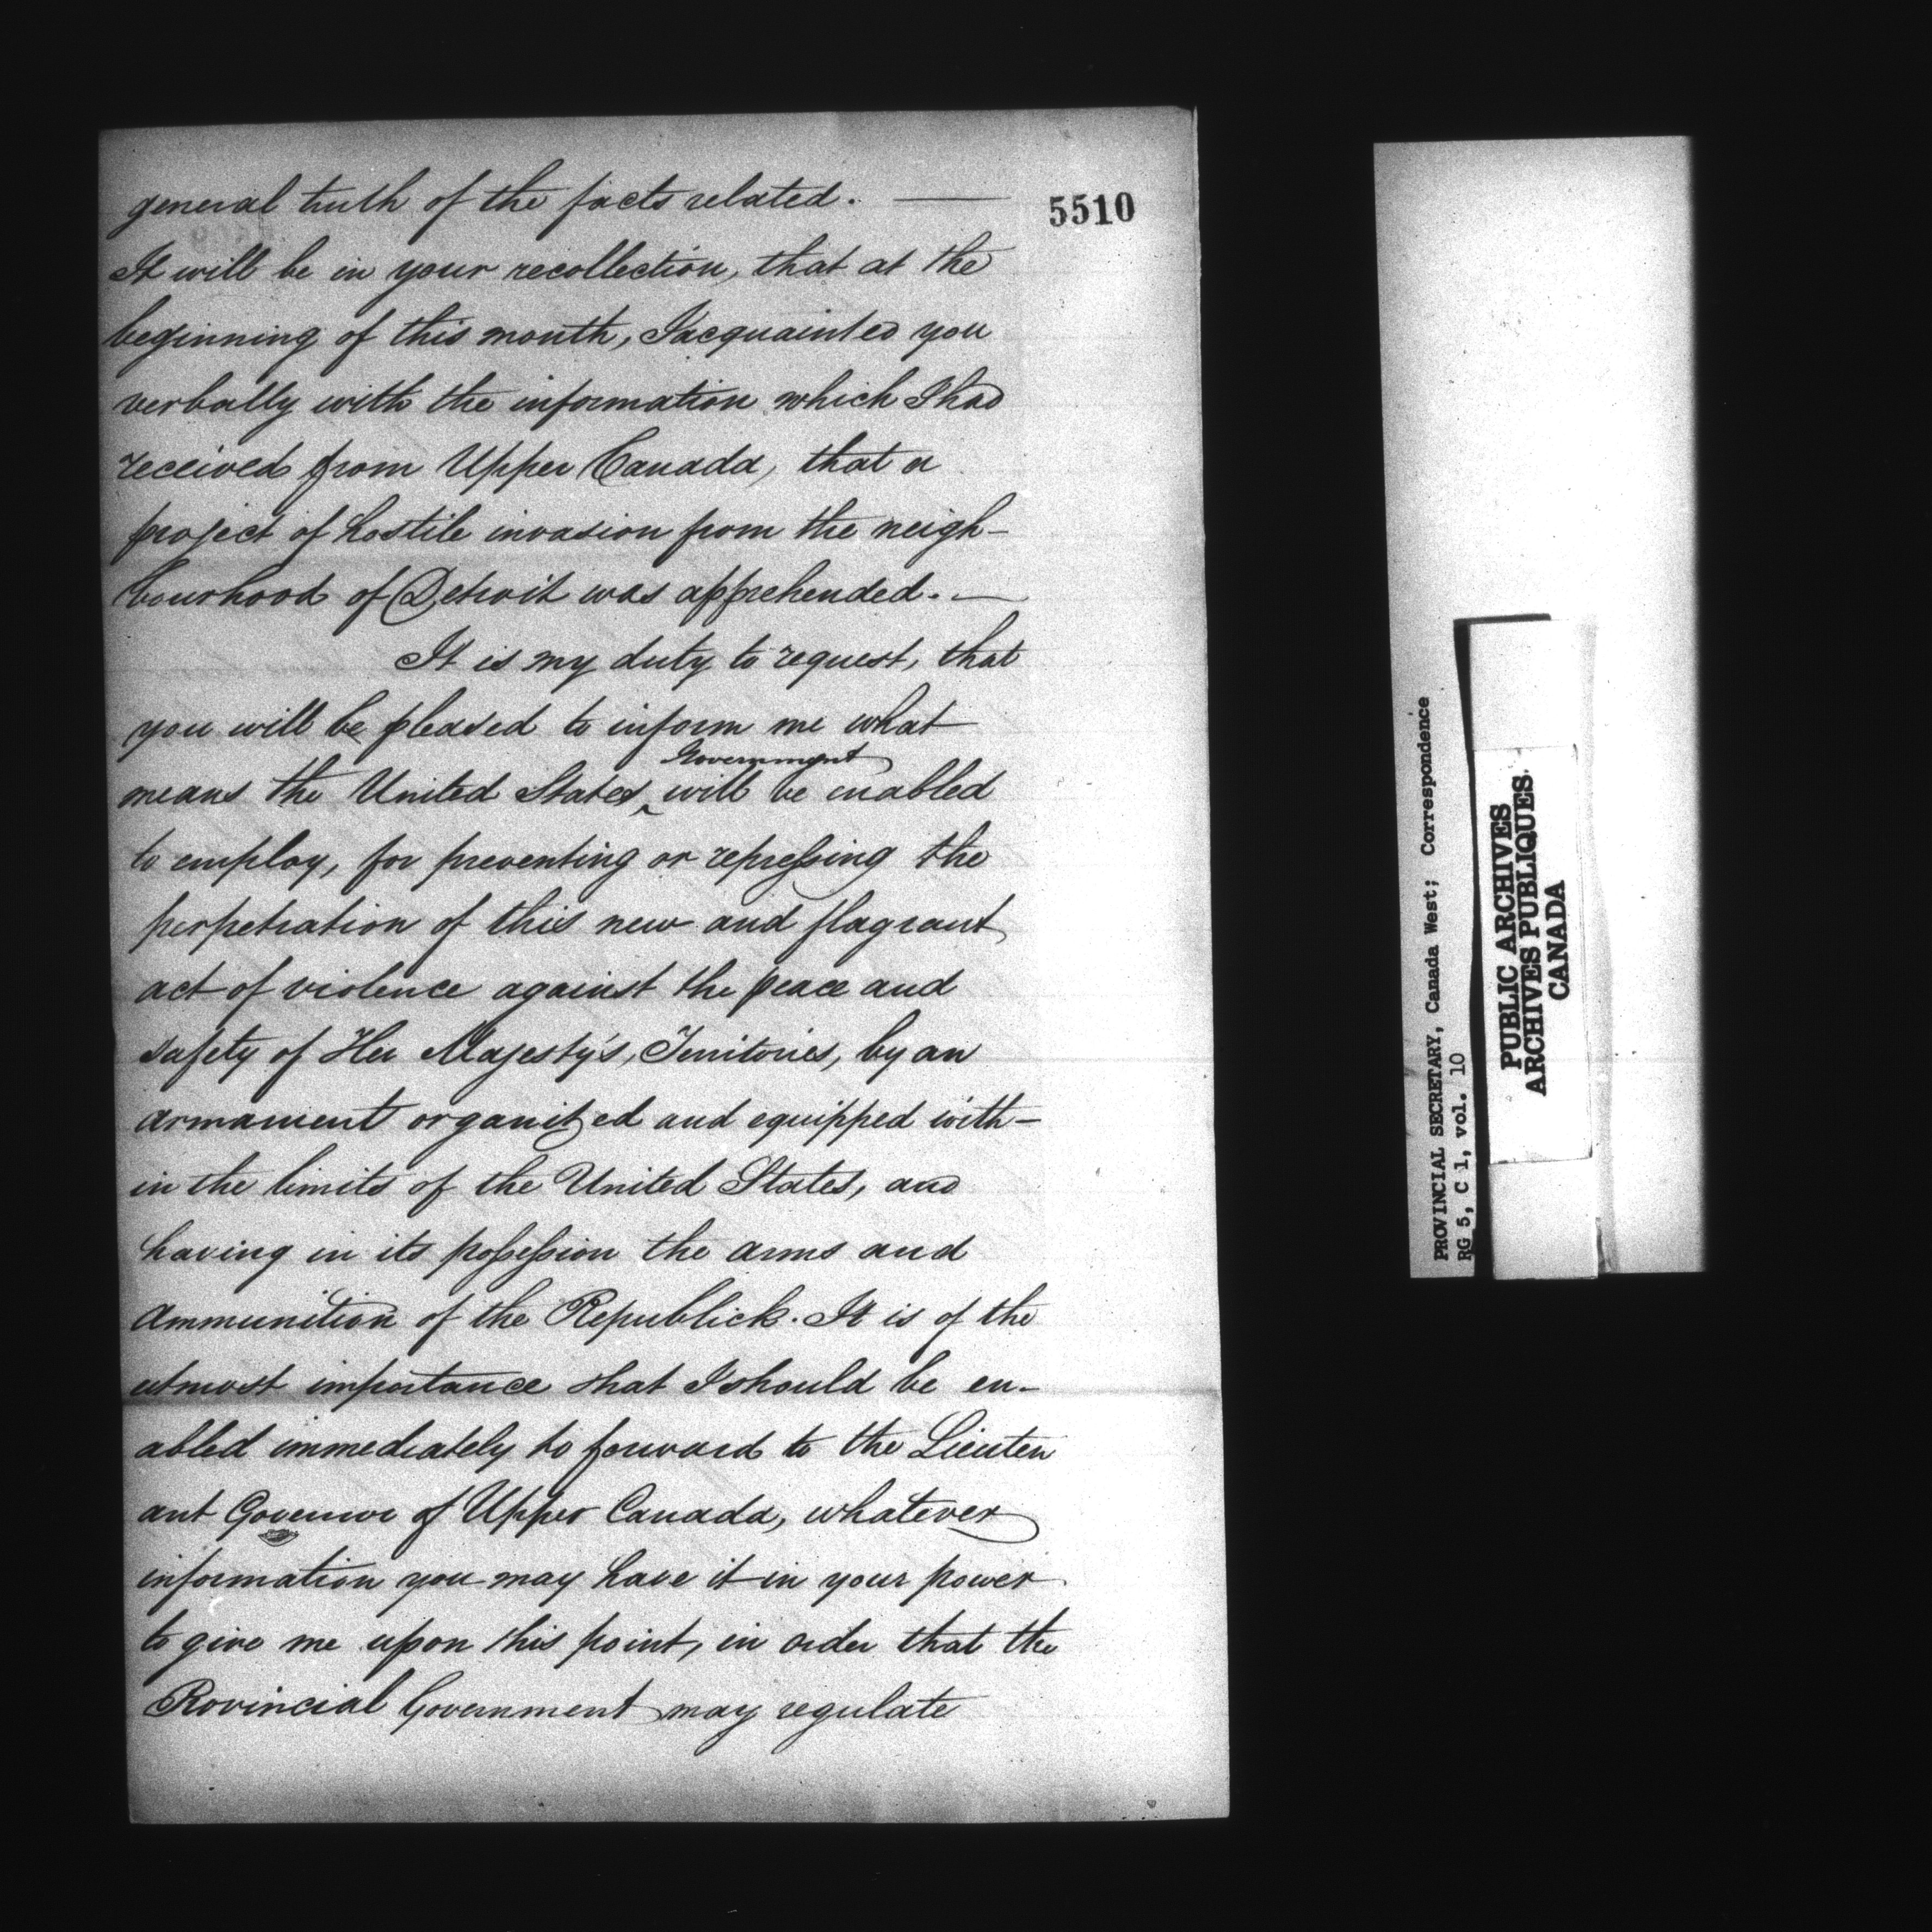 5510
general truth of the facts related. —
It will be in your recollection, that at the
beginning of this month, I acquainted you
verbally with the information which I had
received from Upper Canada, that a
project of hostile invasion from the neigh-
bourhood of Detroit was apprehended. —
It is my duty to request, that
you will be pleased to inform me what
Government
means the United States ‸ will be enabled
to employ, for preventing or repressing the
perpetration of this new and flagrant
act of violence against the peace and
safety of Her Majesty's, Territories, by an
armament organized and equipped with-
in the limits of the United States, and
having in its possession the arms and
ammunition of the Republick. It is of the
utmost importance that I should be en-
abled immediately to forward to the Lieuten
ant Governor of Upper Canada, whatever
information you may have it in your power
to give me upon this point, in order that the
Provincial Government may regulate
PROVINCIAL SECRETARY, Canada West; Correspondence
RG 5, C 1, vol. 10
PUBLIC ARCHIVES
ARCHIVES PUBLIQUES
CANADA